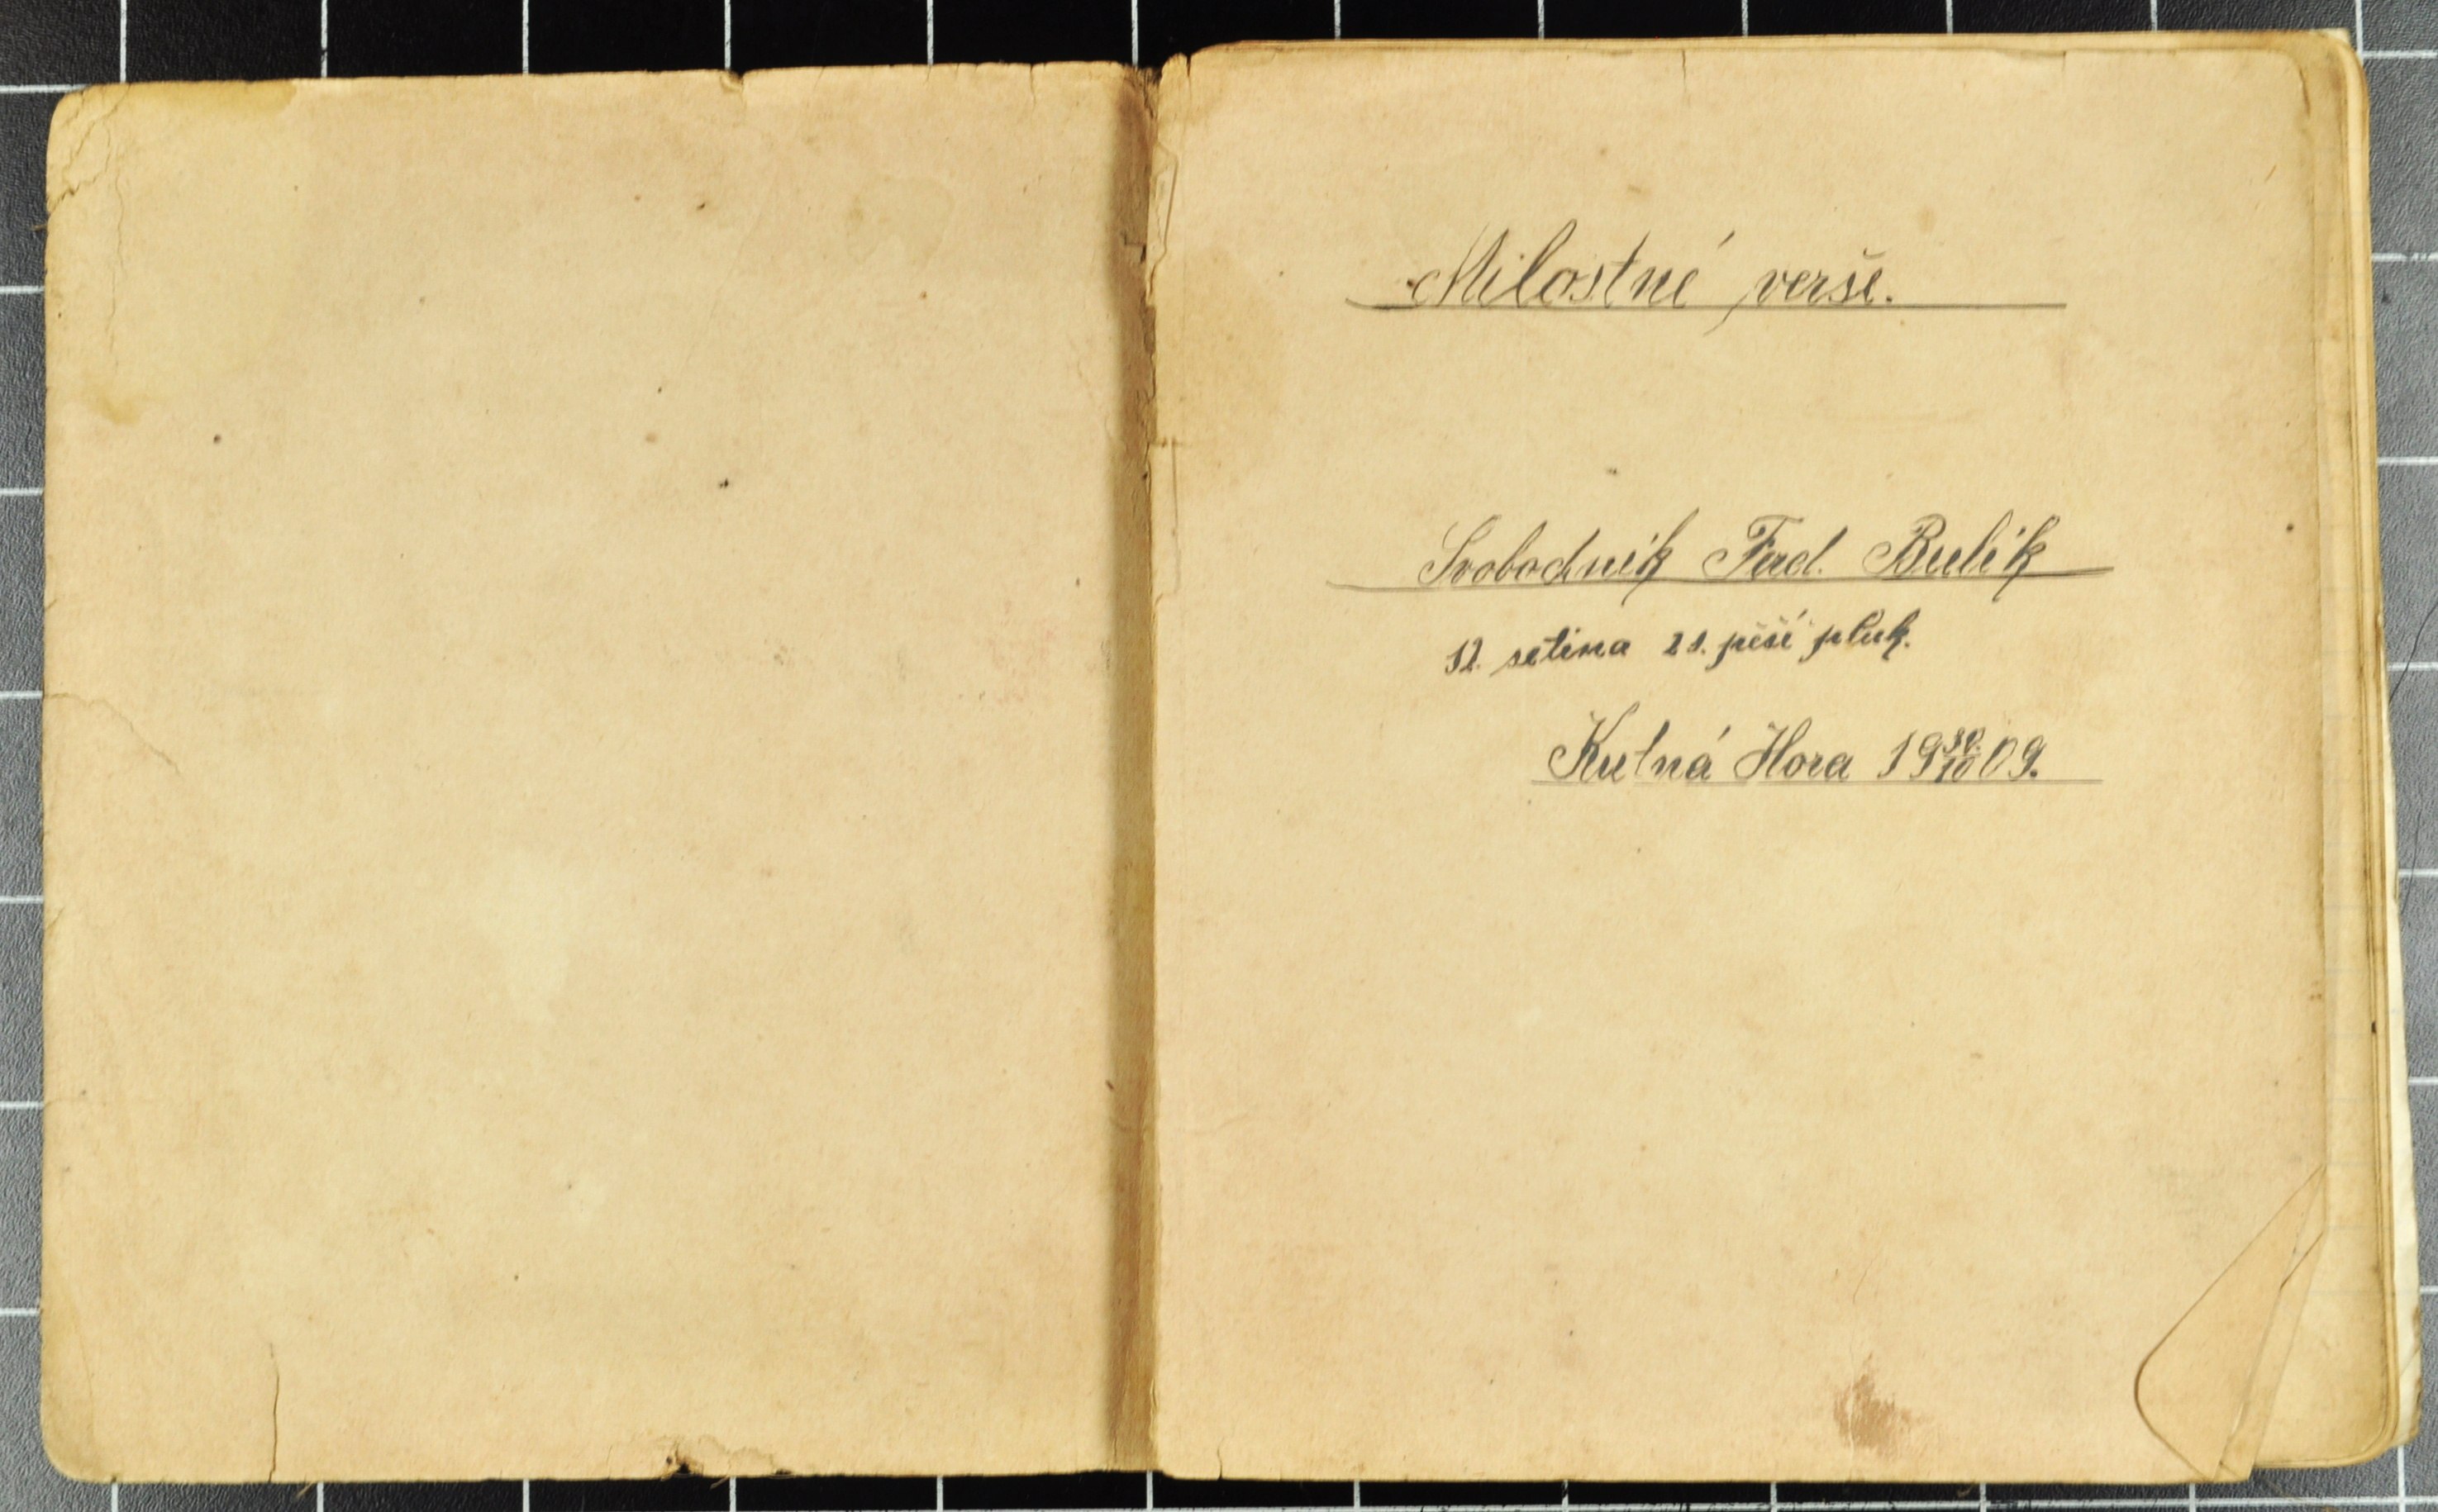 Milostné verše.
Svobodník Ferd. Bulik
12. setina 21. pěší pluk.
Kutná Hora 19 30./10 09.